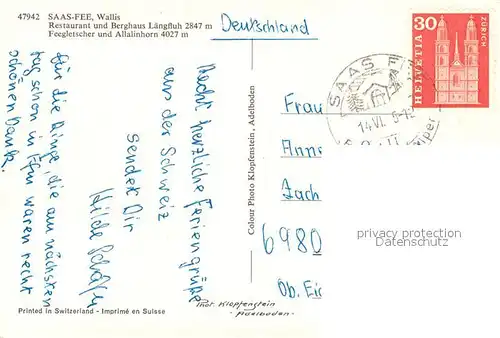 47942 SAAS-FEE, Wallis
Restaurant und Berghaus Längfluh 2847 m
Feegletscher und Allalinhorn 4027 m
Deutschland
30
HELVETIA
ZÜRICH
SAAS F
14.VI.
Recht herzliche Feriengrüße
aus der Schweiz
sendet Dir
Hilde
Für die Ringe, die am nächsten
Tag schon in waren recht
schönen Dank.
Colour Photo Klopfenstein, Adelboden
Frau
Zach
6980
Ob. Ei
privacy protection
Datenschutz
Phot. Klopfenstein
- Adelboden -
Printed in Switzerland - Imprimé en Suisse